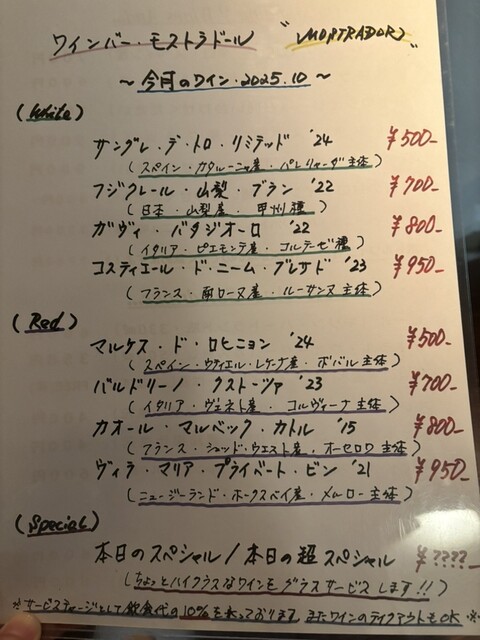 ワインバー・モストラドール "MOSTRADOR"
～今月のワイン・2025.10～
(White)
サングレ・デ・トロ・リミテッド '24 ¥500-
(スペイン・カタルーニャ産・パレリャーダ主体)
フジクレール・山梨・ブラン '22 ¥700-
(日本・山梨産・甲州種)
ガヴィ・バタジオーロ '22 ¥800-
(イタリア・ピエモンテ産・コルテーゼ種)
コスティエール・ド・ニーム・ブレサド '23 ¥950-
(フランス・南ローヌ産・ルーサンヌ主体)
(Red)
マルケス・ド・ロヒニョン '24 ¥500-
(スペイン・ウティエル・レケーナ産・ボバル主体)
バルドリーノ・クストーツァ '23 ¥700-
(イタリア・ヴェネト産・コルヴィーナ主体)
カオール・マルベック・カトル '15 ¥800-
(フランス・シュッド・ウエスト産・オーセロワ主体)
ヴィラ・マリア・プライベート・ビン '21 ¥950-
(ニュージーランド・ホークスベイ産・メルロー主体)
(Special)
本日のスペシャル/本日の超スペシャル ¥????-
(ちょっとハイクラスなワインもグラスサービスします!!)
※サービスチャージとして飲食代の10%を承っております。またワインのテイクアウトもOK※